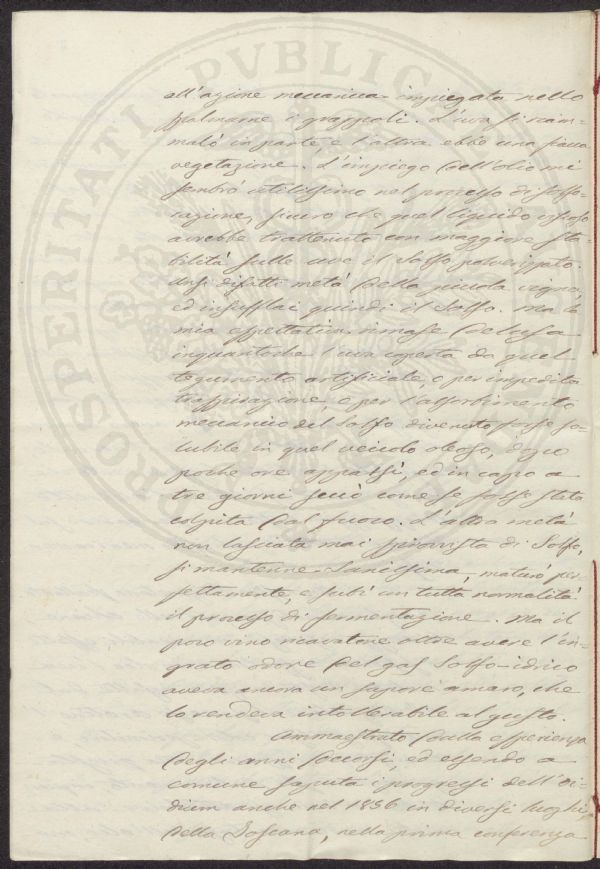 all'azione meccanica impiegata nello
spalmarne i grappoli. L'uva si ram-
malò in parte, e l'altra ebbe una fiacca
vegetazione. L'impiego dell'olio mi
sembrò utilissimo nel processo di solfo-
razione, sicuro che quel liquido
avrebbe trattenuto con maggiore sta-
bilità sulle uve il solfo polverizzato.
Unsi difatti metà della piccola vigna,
ed insufflai quindi il solfo. Ma la
mia espettativa rimase delusa
inquantoche l'uva coperta da quel
tegumento artificiale, o per impedita
traspirazione, o per l'assorbimento
meccanico del solfo divenuto forse so-
lubile in quel veicolo oleoso, dopo
poche ore appassì, ed in capo a
tre giorni seccò come se fosse stata
colpita dal fuoco. L'altra metà
non lasciata mai sprovvista di solfo,
si mantenne sanissima, maturò per-
fettamente, e subì in tutta normalità
il processo di fermentazione. Ma il
poco vino ricavatone oltre avere l'in-
grato odore del gas solfo-idrico
aveva ancora un sapore amaro, che
lo rendeva intollerabile al gusto.
Ammaestrato dalla esperienza
degli anni decorsi, ed essendo a
comune saputa i progressi dell'oi-
dium anche nel 1856 in diversi luoghi
della Toscana, nella prima conferenza
PROSPERITATI PVBLICAE